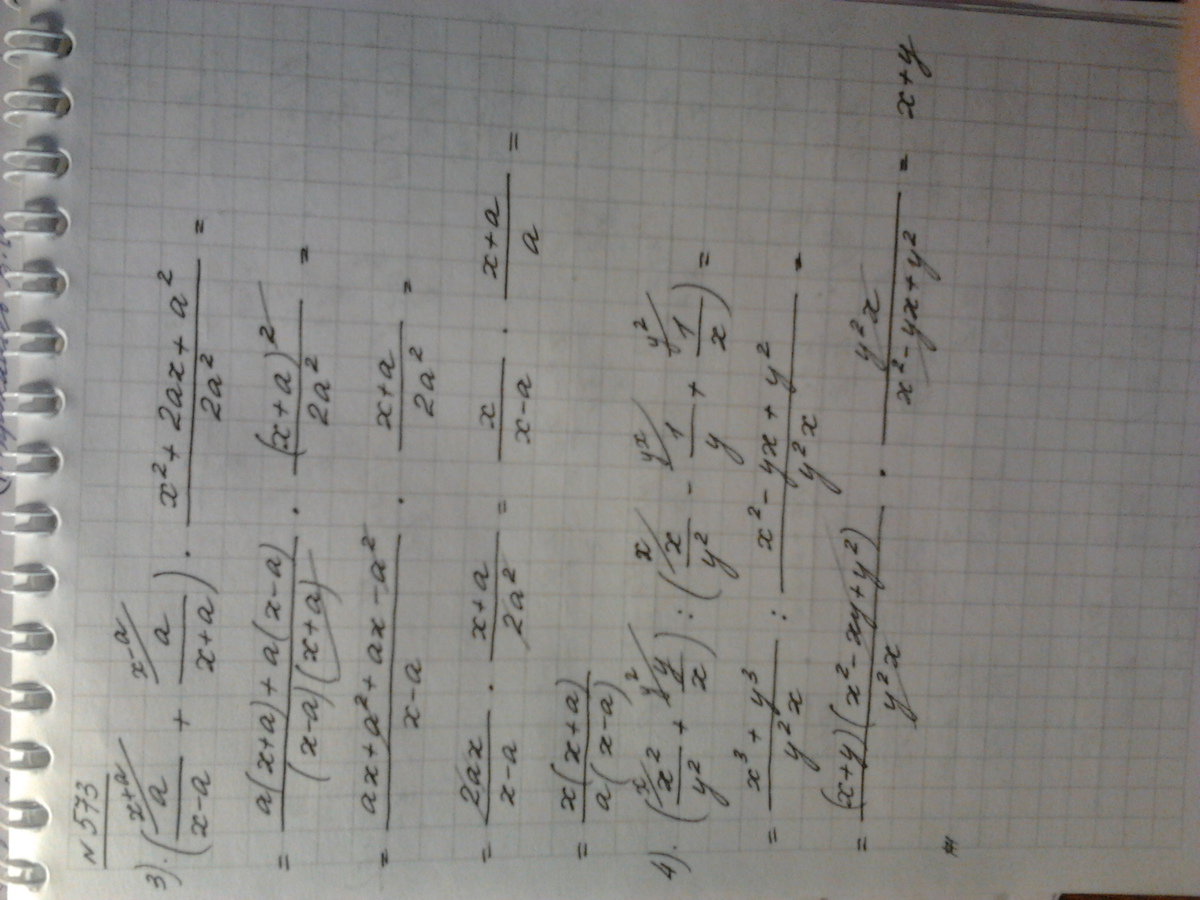 №573
3). (a/(x-a) (x+a + a/(x+a) (x-a) · (x²+2ax+a²)/(2a²) =
= (a(x+a)+a(x-a))/((x-a)(x+a)) · (x+a)²/(2a²) =
= (ax+a²+ax-a²)/(x-a) · (x+a)/(2a²) =
= 2ax/(x-a) · (x+a)/(2a²) = x/(x-a) · (x+a)/a =
= x(x+a)/(a(x-a))
4). (x²/y² (x + y/x (y²) : (x/y² (x - 1/y (yx + 1/x (y²) =
= (x³+y³)/(y²x) : (x²-yx+y²)/(y²x) =
= ((x+y)(x²-xy+y²))/(y²x) · y²x/(x²-yx+y²) = x+y